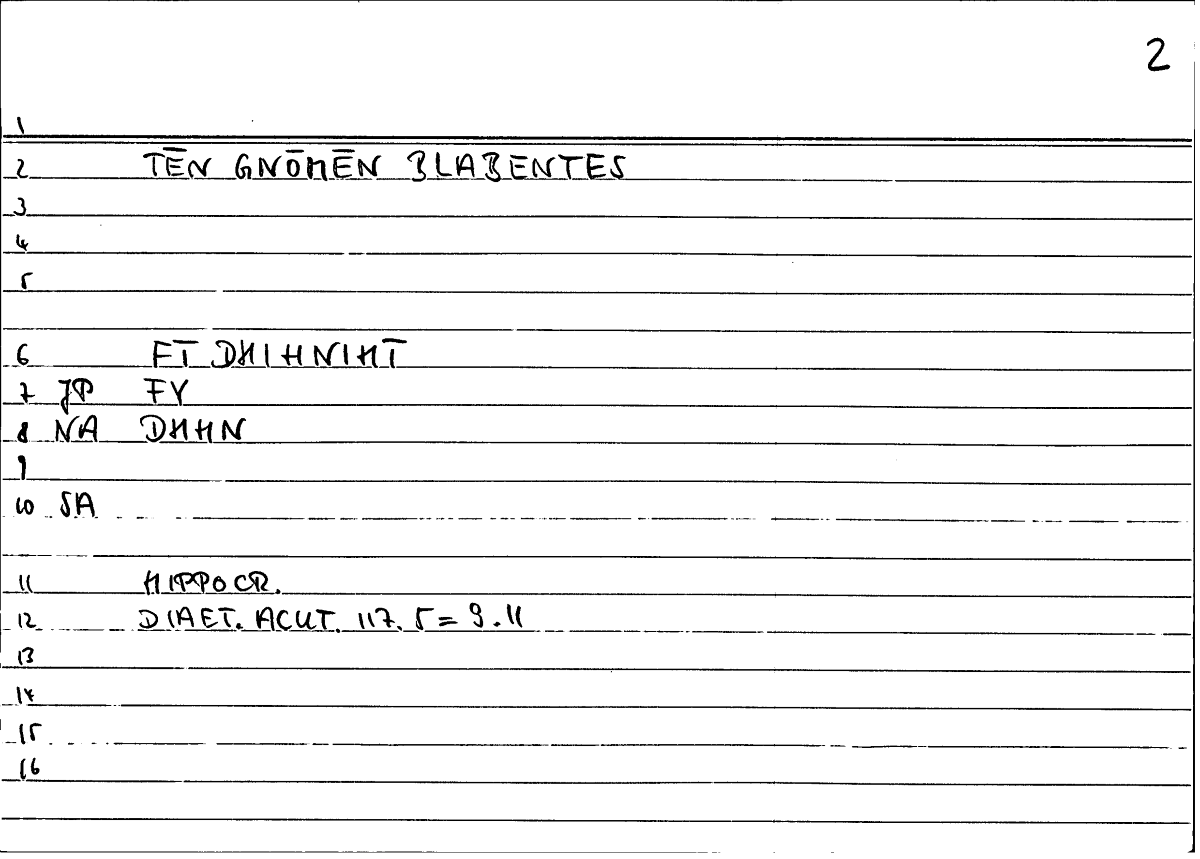 2
1
2 TĒN GNŌMĒN BLABENTES
3
4
5
6 FĪ DHIHNIHĪ
7 JP FY
8 NA DHHN
9
10 SA
11 HIPPOCR.
12 DIAET. ACUT. 117.5=9.11
13
14
15
16